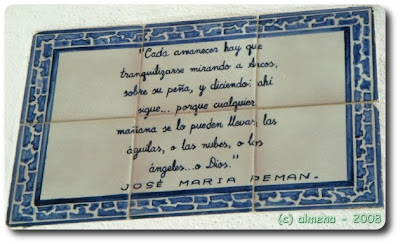 "Cada amanecer hay que
tranquilizarse mirando a Arcos,
sobre su peña, y diciendo: ahí
sigue... porque cualquier
mañana se lo pueden llevar, las
águilas, o las nubes, o los
ángeles...o Dios."
JOSÉ MARIA PEMAN.-
(c) almena - 2008